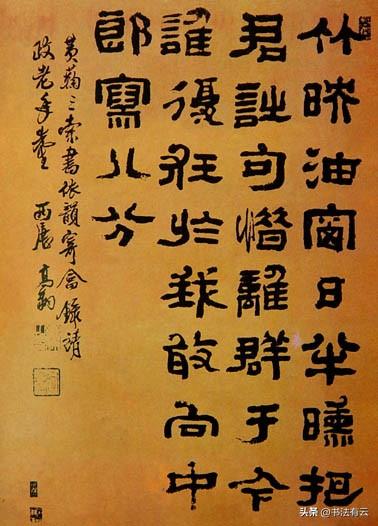 竹映油窗日半曛把
君詩句惜離群于今
誰復狂於我敢向中
郎寫八分
黃菊三索書依韻寄錄請
政老年臺 西唐 高翔
头条 @书法有云